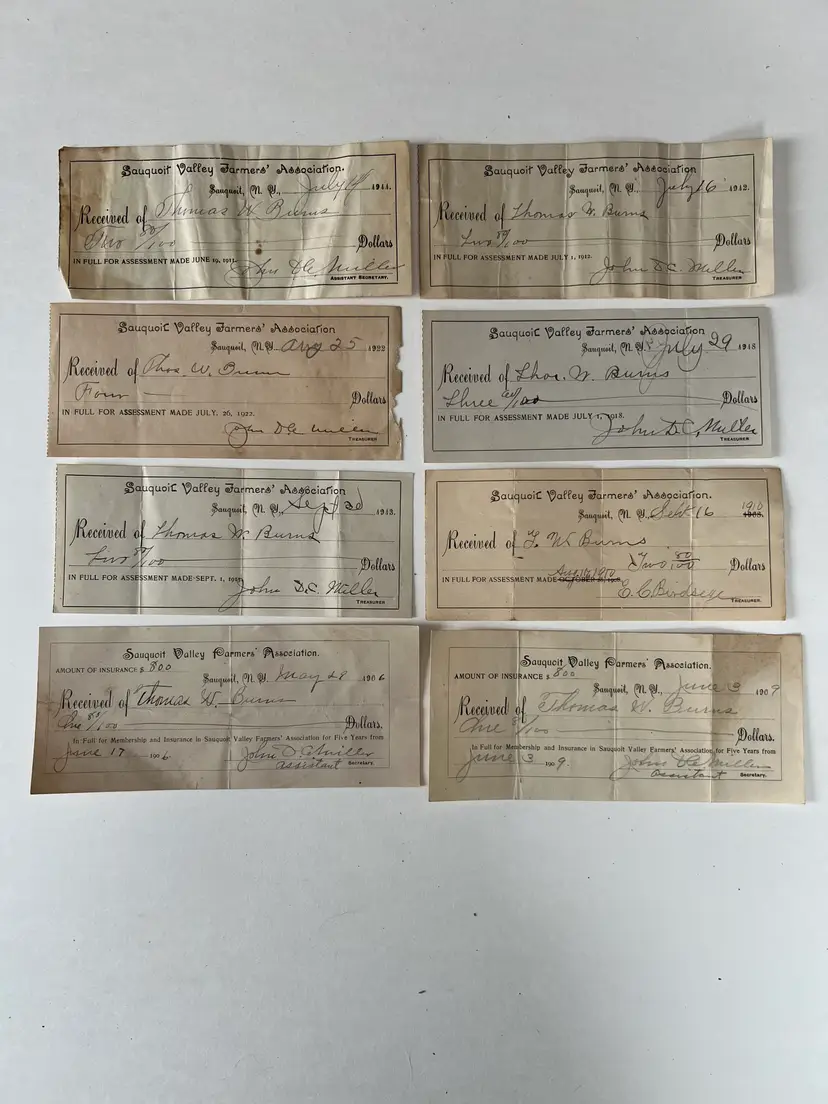 Sauquoit Valley Farmers' Association.
Sauquoit, N. Y., July 1911.
Received of Thomas W Burns
Two 80/100 Dollars
IN FULL FOR ASSESSMENT MADE JUNE 19, 1911.
John DC Miller
ASSISTANT SECRETARY.
Sauquoit Valley Farmers' Association
Sauquoit, N. Y., July 16 1912.
Received of Thomas W. Burns
Two 80/100 Dollars
IN FULL FOR ASSESSMENT MADE JULY 1, 1912.
John D.C. Miller
TREASURER
Sauquoit Valley Farmers' Association
Sauquoit, N. Y. Aug 25 1922
Received of Thos. W. Burns
Four Dollars
IN FULL FOR ASSESSMENT MADE JULY. 26, 1922.
John DC Miller
TREASURER
Sauquoit Valley Farmers' Association
Sauquoit, N. Y. July 29 1918
Received of Thos. W. Burns
Three 60/100 Dollars
IN FULL FOR ASSESSMENT MADE JULY 1, 1918.
John D.C. Miller
TREASURER
Sauquoit Valley Farmers' Association
Sauquoit, N. Y., Sept 1913.
Received of Thomas W. Burns
Two 80/100 Dollars
IN FULL FOR ASSESSMENT MADE SEPT. 1, 1913.
John D.C. Miller
TREASURER
Sauquoit Valley Farmers' Association.
Sauquoit, N. Y., Sept 16 1910
Received of T. W. Burns
Two 80/100 Dollars
IN FULL FOR ASSESSMENT MADE Aug 16, 1910
E. C. Birdseye
TREASURER.
Sauquoit Valley Farmers' Association.
AMOUNT OF INSURANCE $ 800
Sauquoit, N. Y. May 28 1906
Received of Thomas W. Burns
One 80/100 Dollars.
In Full for Membership and Insurance in Sauquoit Valley Farmers' Association for Five Years from
June 17 1906.
John D.C. Miller
assistant Secretary.
Sauquoit Valley Farmers' Association.
AMOUNT OF INSURANCE $ 800
Sauquoit, N. Y., June 3 1909
Received of Thomas W. Burns
One Dollars.
In Full for Membership and Insurance in Sauquoit Valley Farmers' Association for Five Years from
June 3 1909.
John DC Miller
assistant Secretary.